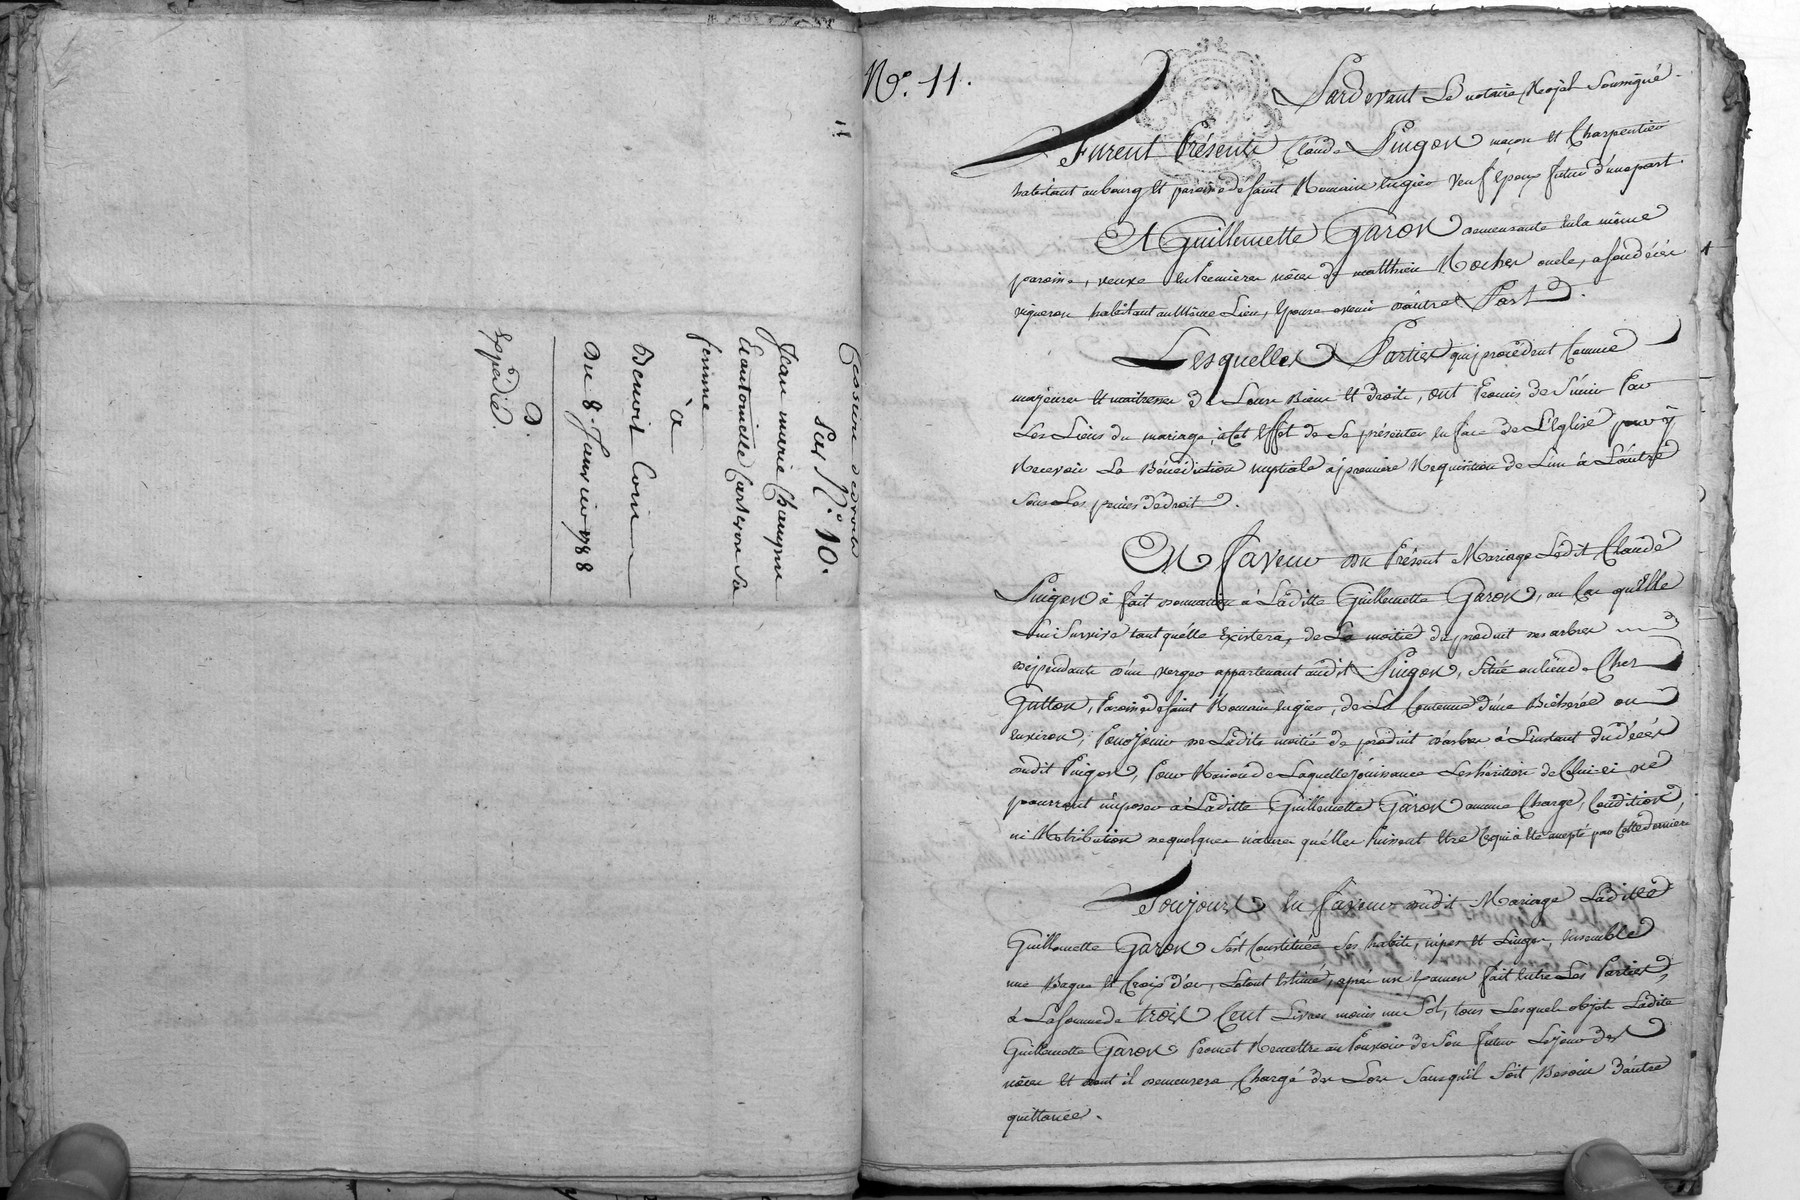 Cession de droits
Sur N.° 10.
Jean marie Champin
Et antoinette Carteron sa
femme
à
Benoit Corin
Du 8. Janvier 1788
D.
Expédié.
11
N.° 11.
Pardevant Le notaire Royal Soussigné
Furent Présents Claude Pingon maçon et Charpentier
habitant au bourg et paroisse de saint Romain en gier veuf Epoux futur d'une part.
Et Guillemette Garon demeurante en la même
paroisse, veuve en premieres nôces de matthieu Rocher, a son décès
vigneron habitant au même Lieu, Epouse avenir d'autre Part.
Lesquelles Parties qui procèdent Comme
majeures et maitresses de Leurs Biens et droits, ont Promis de S'unir Par
Les Liens du mariage, à Cet Effet de Se présenter en face de L'Eglise pour ÿ
Recevoir La Bénédiction nuptiale à première Requisition de L'un à L'autre
Sous Les peines de droit.
En faveur du Présent Mariage Ledit Claude
Pingon à fait donnation à Laditte Guillemette Garon, au Cas qu'Elle
Lui Survive tant qu'elle Existera, de La moitié du produit des arbres
dépendants d'un verger appartenant audit Pingon, Situé au lieu de Chez
Gutton, Paroisse de saint Romain en gier, de La Contenue d'une Bicherée ou
Environ, Pour Jouir de Ladite moitié de produit d'arbres à L'instant du décès
dudit Pingon, Pour Raison de Laquelle jouissance Les héritiers de Celui-ci ne
pourront imposer à Laditte Guillemette Garon aucune Charge, Condition,
ni Retribution de quelques natures qu'elles Puissent Etre Ce qui à été accepté par Cette derniere
Toujours En faveur dudit Mariage Laditte
Guillemette Garon S'est Constituée Ses habits, nipes et Linges, Ensemble
une Bague et Croix d'or, Le tout Estimé, après un Examen fait Entre Les Parties,
à La Somme de trois Cent Livres moins un Sol, tous Lesquels objets Ladite
Guillemette Garon Promet Remettre au Pouvoir de Son futur Le jour des
nôces et dont il demeurera Chargé dès Lors Sans qu'il Soit Besoin d'autre
quittance.